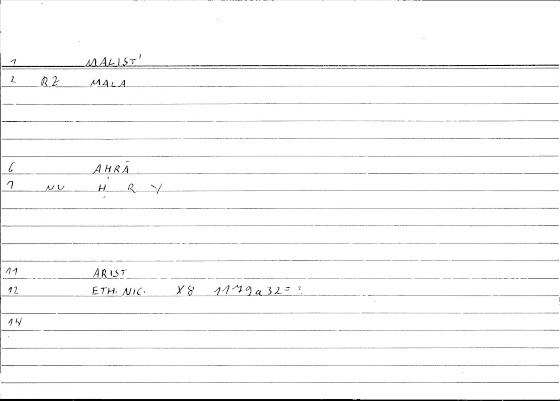 1 MALISTʾ
2 RZ MALA
6 AHRĀ
7 NU Ḥ R Y
11 ARIST
12 ETH. NIC. X8 1179a32 = ?
14